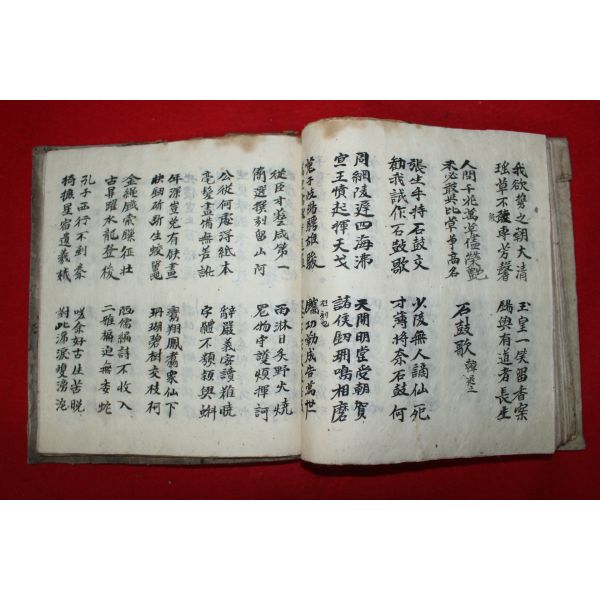 我欲誓之朝大清
瑤草不獲專芳馨
玉皇一笑留香案
賜與有道者長生
人間千兆萬草儘榮艷
未必敢與比 高名
石鼓歌 韓退之
張生手持石鼓文
勸我試作石鼓歌
少陵無人謫仙死
才薄將奈石鼓何
周綱陵遲四海沸
宣王憤起揮天戈
天開明堂受朝賀
諸侯劍珮鳴相磨
蒐于岐陽騁雄駿
鐫功勒成告萬世
從臣才藝咸第一
簡選撰刻留山阿
雨淋日炙野火燒
鬼物守護煩撝訶
公從何處得紙本
毫髮盡備無差訛
辭嚴義密讀難曉
字體不類隸與蝌
年深豈免有缺畫
快劍斫斷生蛟鼉
鸞翔鳳翥衆仙下
珊瑚碧樹交枝柯
金繩鐵索 壯
古鼎躍水龍登梭
陋儒編詩不收入
二雅褊迫無委蛇
孔子西行不到秦
掎摭星宿遺羲娥
嗟余好古生苦晚
對此涕淚雙滂沱